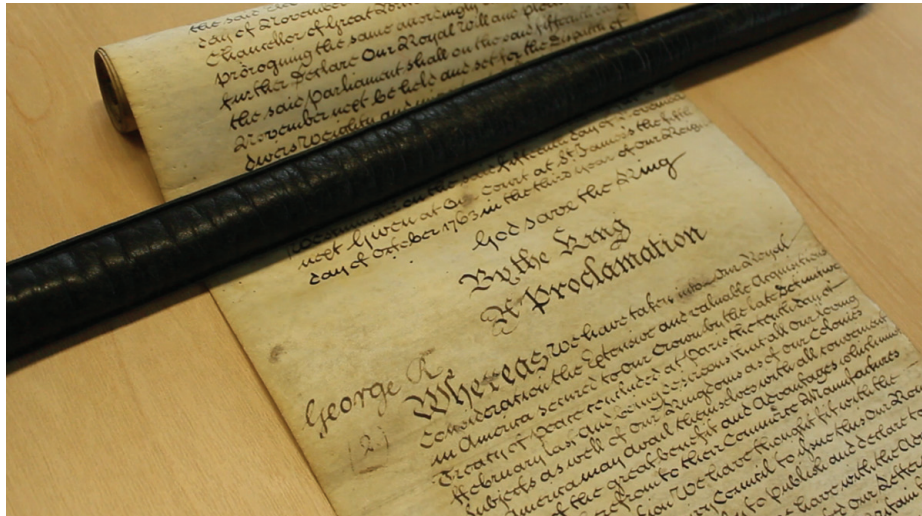 the said
day of November
Chancellor of Great
proroguing the same accordingly
further Declare Our Royal Will and
the said Parliament shall on the said fifteenth day of
November next be held and set for the Dispatch of
divers Weighty and
on the said fifteenth day of November
next Given at Our Court at St James's the fifth
day of October 1763 in the third Year of our Reign
God save the King
By the King
A Proclamation
George R
(2.)
Whereas We have taken into Our Royal
Consideration the Extensive and valuable Acquisitions
in America secured to our Crown by the late Definitive
Treaty of Peace concluded at Paris the tenth day of
February last and being desirous that all our loving
Subjects as well of our Kingdoms as of our Colonies
in America may avail themselves with all convenient
of the great benefit and Advantages which must
therefrom to their Commerce Manufactures
We have thought fit with the
Privy Council to issue this Our Royal
to Publish and declare to
have with the
our Letters